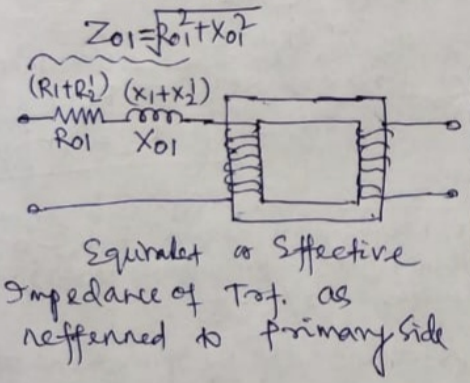 Z01=√R01²+X01²
(R1+R2') (X1+X2')
R01 X01
Equivalet or Effective
Impedance of Trf. as
refferred to primary side